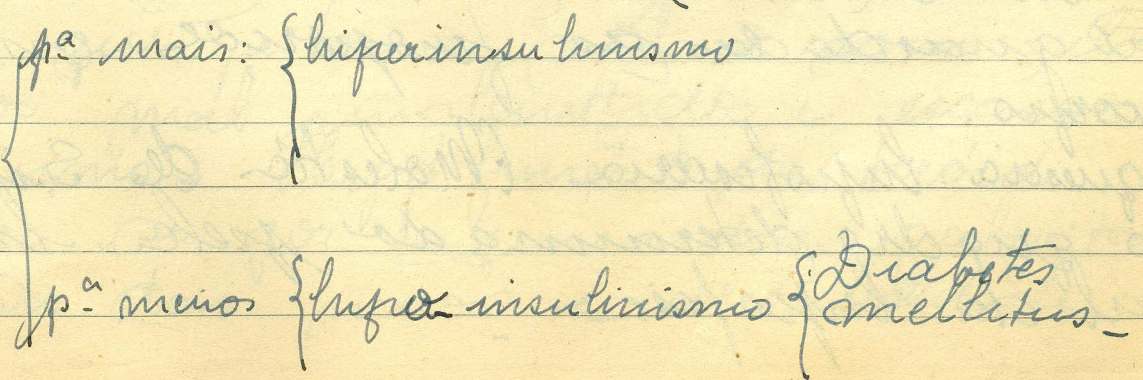 pª mais: { hiperinsulinismo
pª menos { hipo-insulinismo { Diabetes
mellitus-